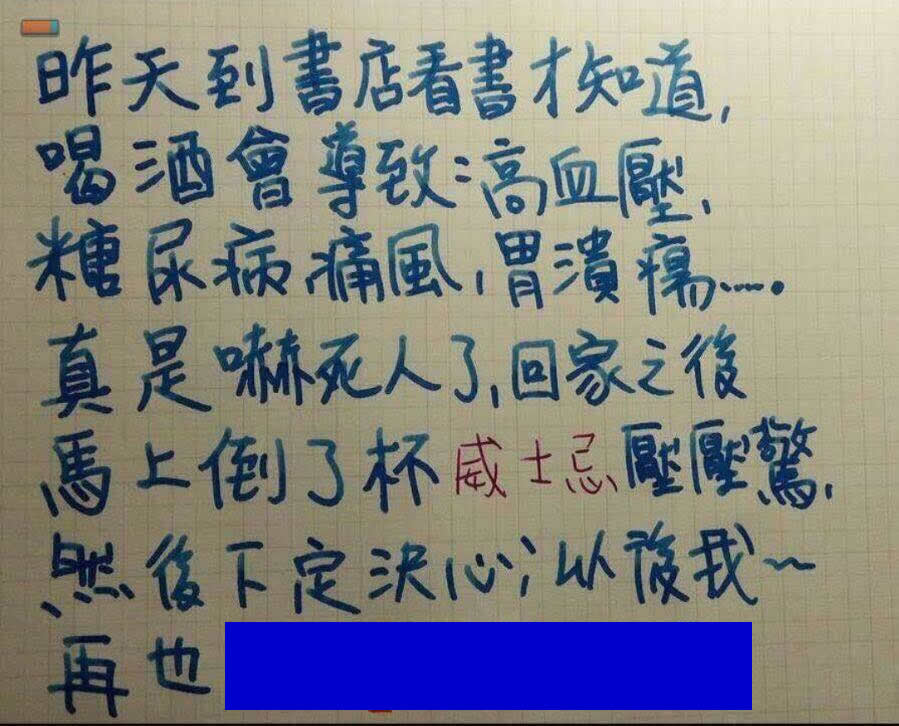 昨天到書店看書才知道,
喝酒會導致:高血壓,
糖尿病痛風,胃潰瘍.....
真是嚇死人了,回家之後
馬上倒了杯威士忌壓壓驚,
然後下定決心;以後我~
再也